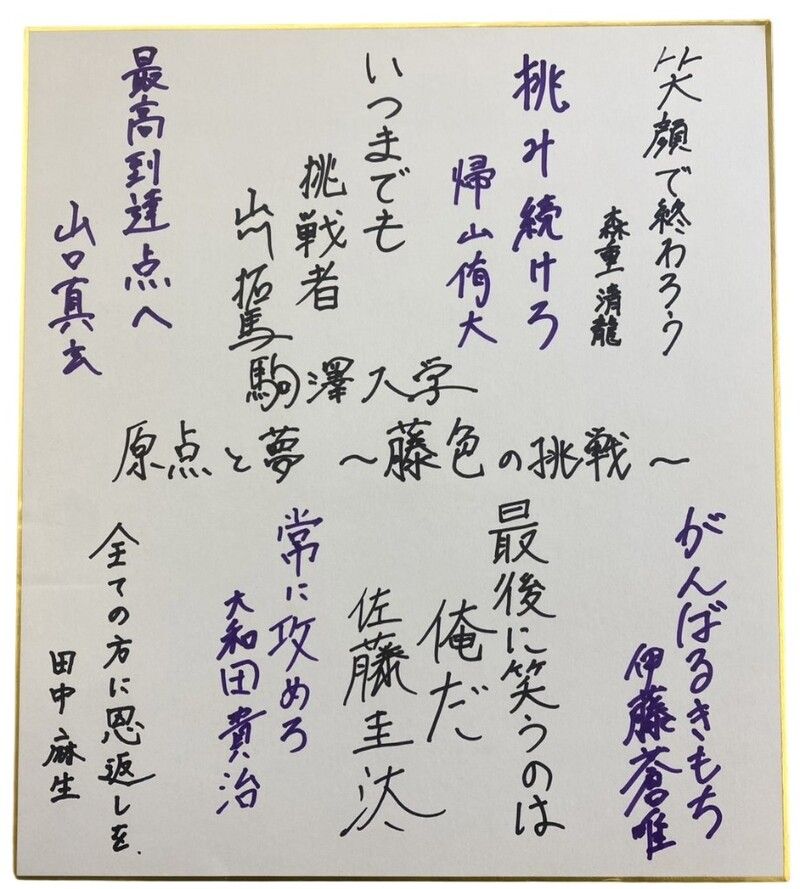 笑顔で終わろう
森重清龍
挑み続けろ
帰山侑大
いつまでも
挑戦者
山川拓馬
最高到達点へ
山口真玄
駒澤大学
原点と夢 ～藤色の挑戦～
がんばるきもち
伊藤蒼唯
最後に笑うのは
俺だ
佐藤圭汰
常に攻めろ
大和田貴治
全ての方に恩返しを.
田中麻生